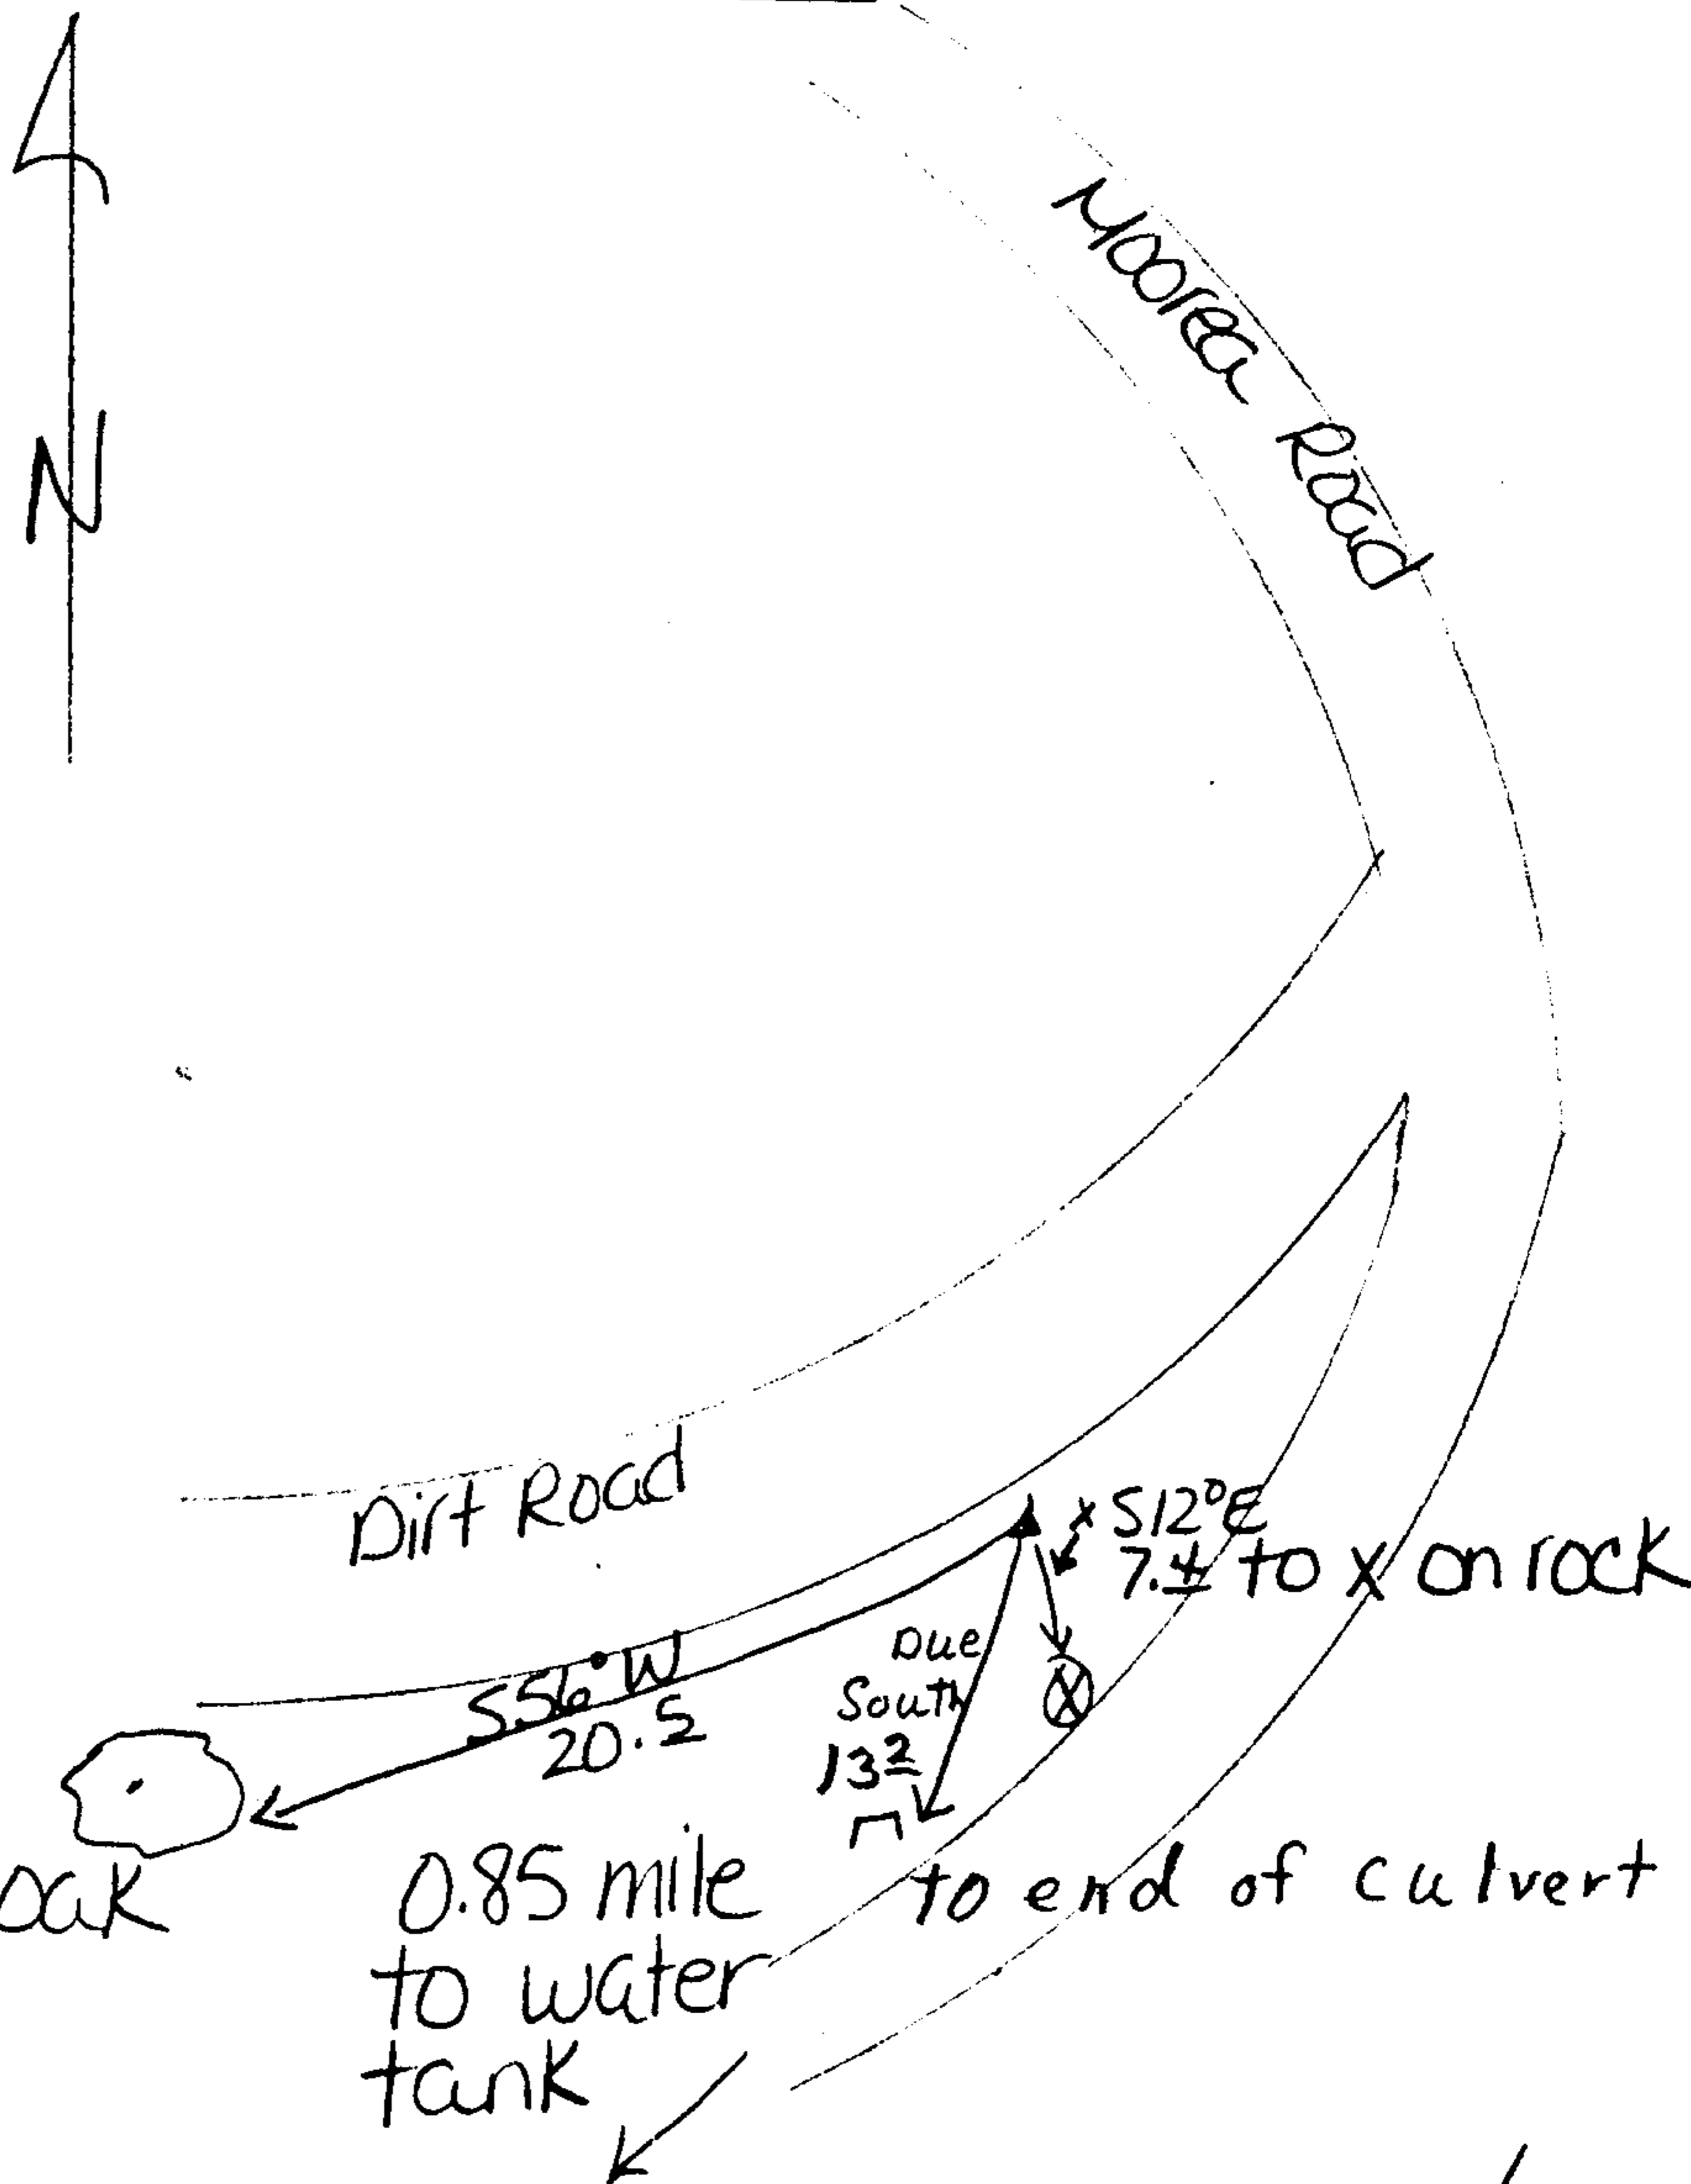 N
Moorea Road
Dirt Road
x S12°E
7.4 to X on rock
Due
South
13 2
S56°W
20.5
oak
0.85 mile
to water
tank
to end of culvert